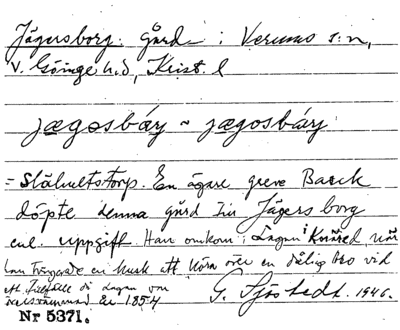 Jägersborg. gård i Verums s:n,
V. Göinge h.d, Krist. l
jægosbárj ~ jægosbárj
= Slähultstorp. En ägare greve Barck
döpte denna gård till Jägersborg
enl. uppgift. Han omkom i Lagan i Knäred när
han tvingade en kusk att köra över en dålig bro vid
ett tillfälle då Lagan var
översvämmad år 1854
G. Sjöstedt. 1946.
Nr 5371.